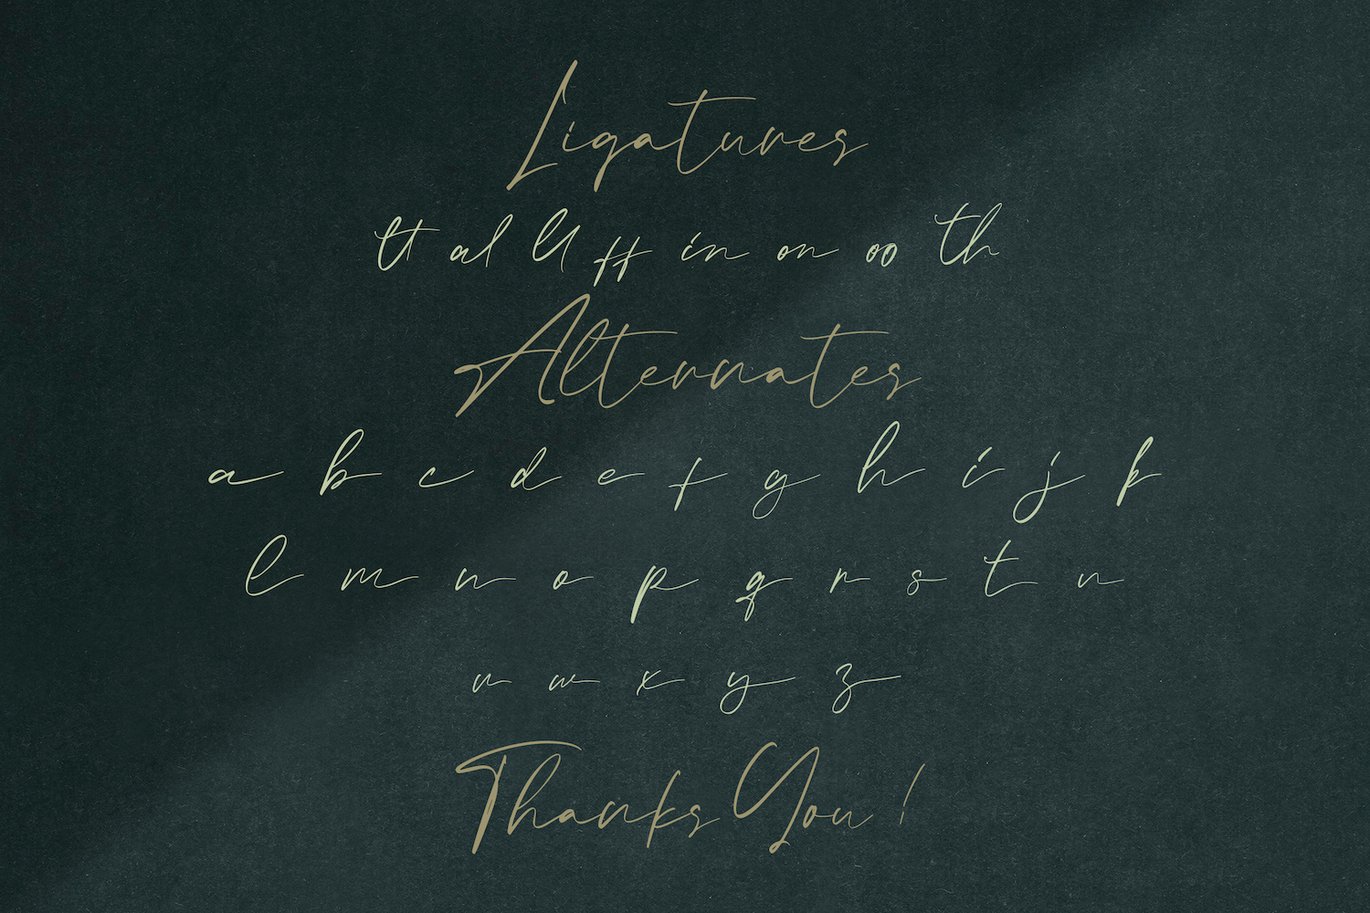 Ligatures
tt al ll ff in on oo th
Alternates
a b c d e f g h i j k
l m n o p q r s t u
v w x y z
Thanks You !